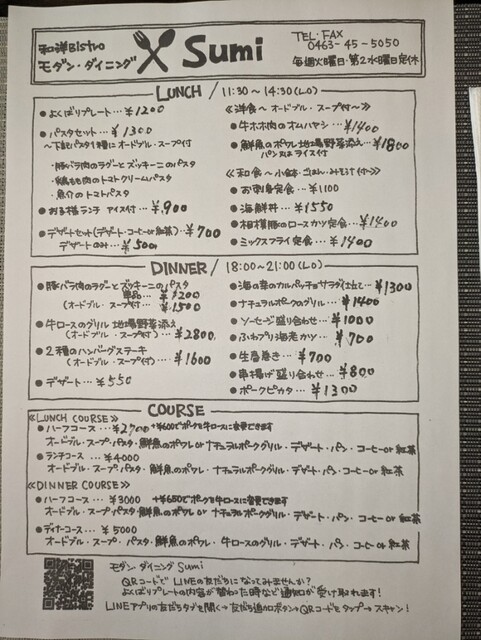 和洋Bistro
モダン・ダイニング
Sumi
TEL・FAX
0463-45-5050
毎週火曜日・第2水曜日定休
LUNCH / 11:30〜14:30(L.O)
● よくばりプレート…¥1200
● パスタセット…¥1300
〜下記パスタ1種にオードブル・スープ付
・豚バラ肉のラグーとズッキーニのパスタ
・鶏もも肉のトマトクリームパスタ
・魚介のトマトパスタ
● お子様ランチ アイス付…¥900
● デザートセット(デザート・コーヒーor紅茶)…¥700
デザートのみ…¥500
≪洋食〜オードブル・スープ付〜≫
● 牛ホホ肉のオムハヤシ…¥1400
● 鮮魚のポワレ 地場野菜添え…¥1800
パン又はライス付
≪和食〜小鉢・ごはん・みそ汁付〜≫
● お刺身定食…¥1100
● 海鮮丼…¥1550
● 相模豚のロースかツ定食…¥1400
● ミックスフライ定食…¥1400
DINNER / 18:00〜21:00(L.O)
● 豚バラ肉のラグーとズッキーニのパスタ
単品…¥1200
(オードブル・スープ付)…¥1500
● 牛ロースのグリル 地場野菜添え
(オードブル・スープ付)…¥2800
● 2種のハンバーグステーキ
(オードブル・スープ付)…¥1600
● デザート…¥550
● 海の幸のカルパッチョ サラダ仕立て…¥1300
● ナチュラルポークのグリル…¥1400
● ソーセージ盛り合わせ…¥1000
● ふわぷり海老カツ…¥700
● 生春巻き…¥700
● 串揚げ盛り合わせ…¥800
● ポークピカタ…¥1300
COURSE
≪LUNCH COURSE≫
● ハーフコース…¥2700 +¥600でポークを牛ロースに変更できます
オードブル・スープ・パスタ・鮮魚のポワレorナチュラルポークグリル・デザート・パン・コーヒーor紅茶
● ランチコース…¥4000
オードブル・スープ・パスタ・鮮魚のポワレ・ナチュラルポークグリル・デザート・パン・コーヒーor紅茶
≪DINNER COURSE≫
● ハーフコース…¥3000 +¥650でポークを牛ロースに変更できます
オードブル・スープ・パスタ・鮮魚のポワレorナチュラルポークグリル・デザート・パン・コーヒーor紅茶
● ディナーコース…¥5000
オードブル・スープ・パスタ・鮮魚のポワレ・牛ロースのグリル・デザート・パン・コーヒーor紅茶
モダン ダイニング Sumi
QRコードで LINEの友だちになってみませんか?
よくばりプレートの内容が替わった時など通知が受け取れます!
LINEアプリの友だちタブを開く→友だち追加ボタン→QRコードをタップ→スキャン!